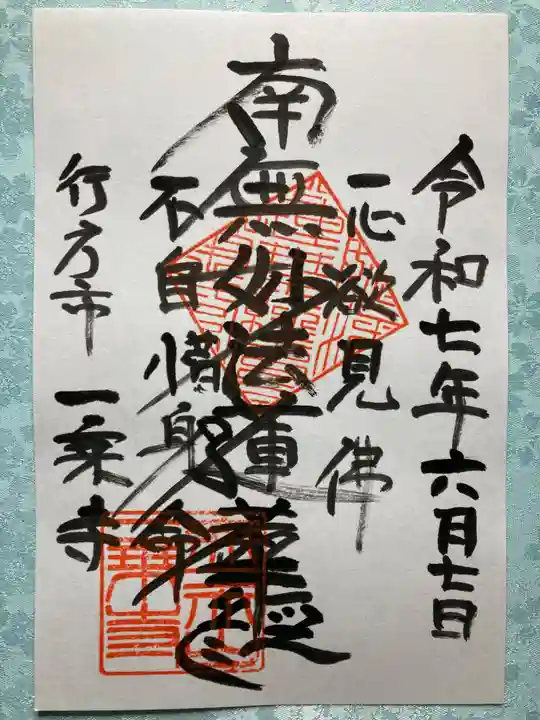 令和七年六月七日
一心欲見佛
南無妙法蓮華経
不自惜身命
行方市 一乗寺